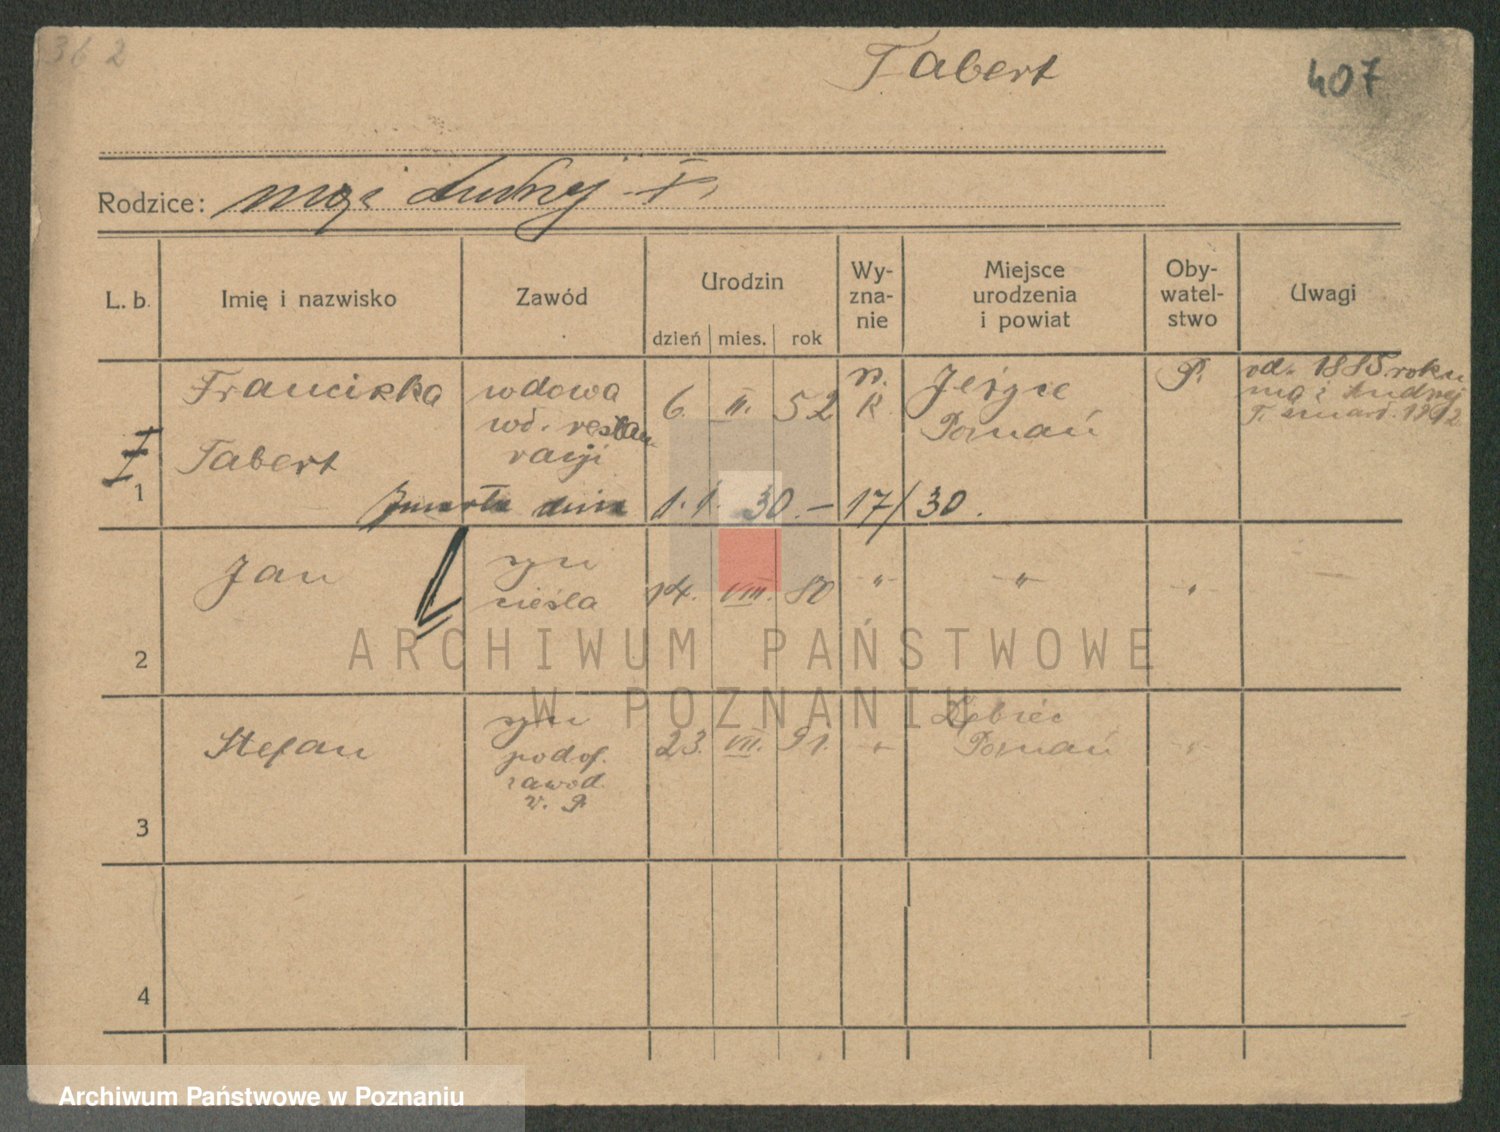 362
Tabert
407
Rodzice: mąż Andrzej T.
L. b.
Imię i nazwisko
Zawód
Urodzin
dzień mies. rok
Wy-
zna-
nie
Miejsce
urodzenia
i powiat
Oby-
watel-
stwo
Uwagi
1
Franciszka
Tabert
wdowa
wł. restau
racji
6. II. 52
r.
K.
Jeżyce
Poznań
P.
od. 1885 roku
mąż Andrzej
T. zmarł. 1912
Zmarła dnia 1. 1. 30. – 17/30.
2
Jan
syn
cieśla
14. VIII. 80
"
"
"
3
Stefan
syn
podof.
zawod.
W. P.
23. VII. 91.
"
Dębiec
Poznań
"
4
ARCHIWUM PAŃSTWOWE
W POZNANIU
Archiwum Państwowe w Poznaniu